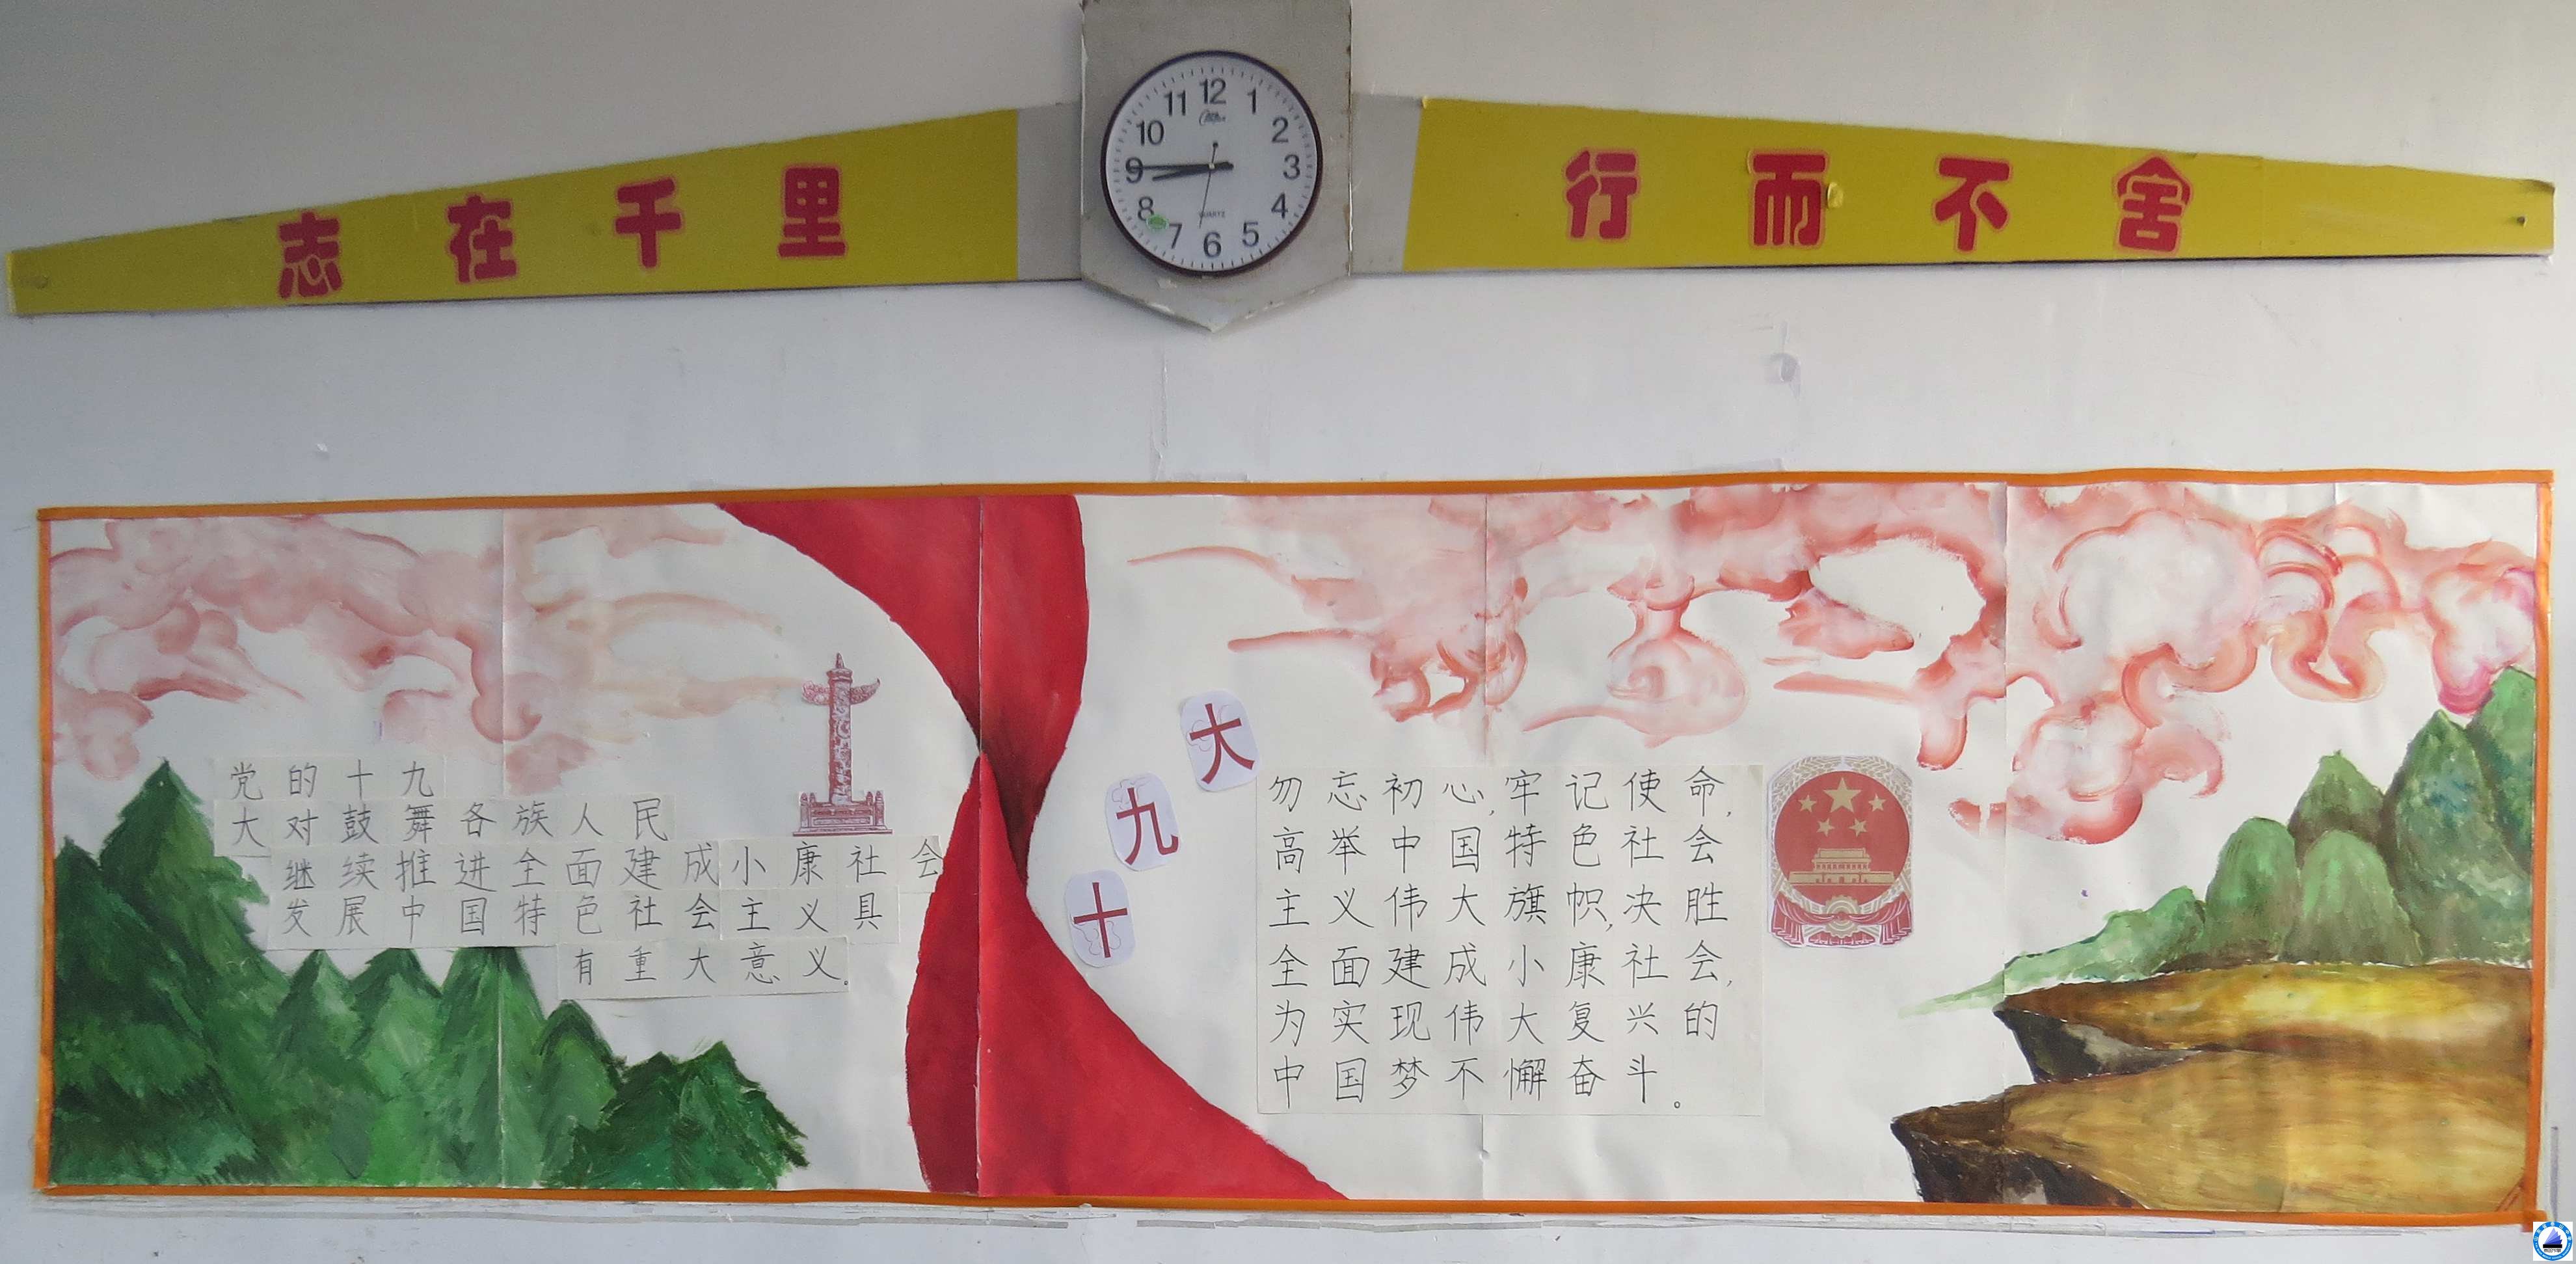 志在千里
行而不舍
12
1
2
3
4
5
6
7
8
9
10
11
QUARTZ
党的十九
大对鼓舞各族人民
继续推进全面建成小康社会
发展中国特色社会主义具
有重大意义。
十九大
勿忘初心,牢记使命,
高举中国特色社会
主义伟大旗帜,决胜
全面建成小康社会,
为实现伟大复兴的
中国梦不懈奋斗。